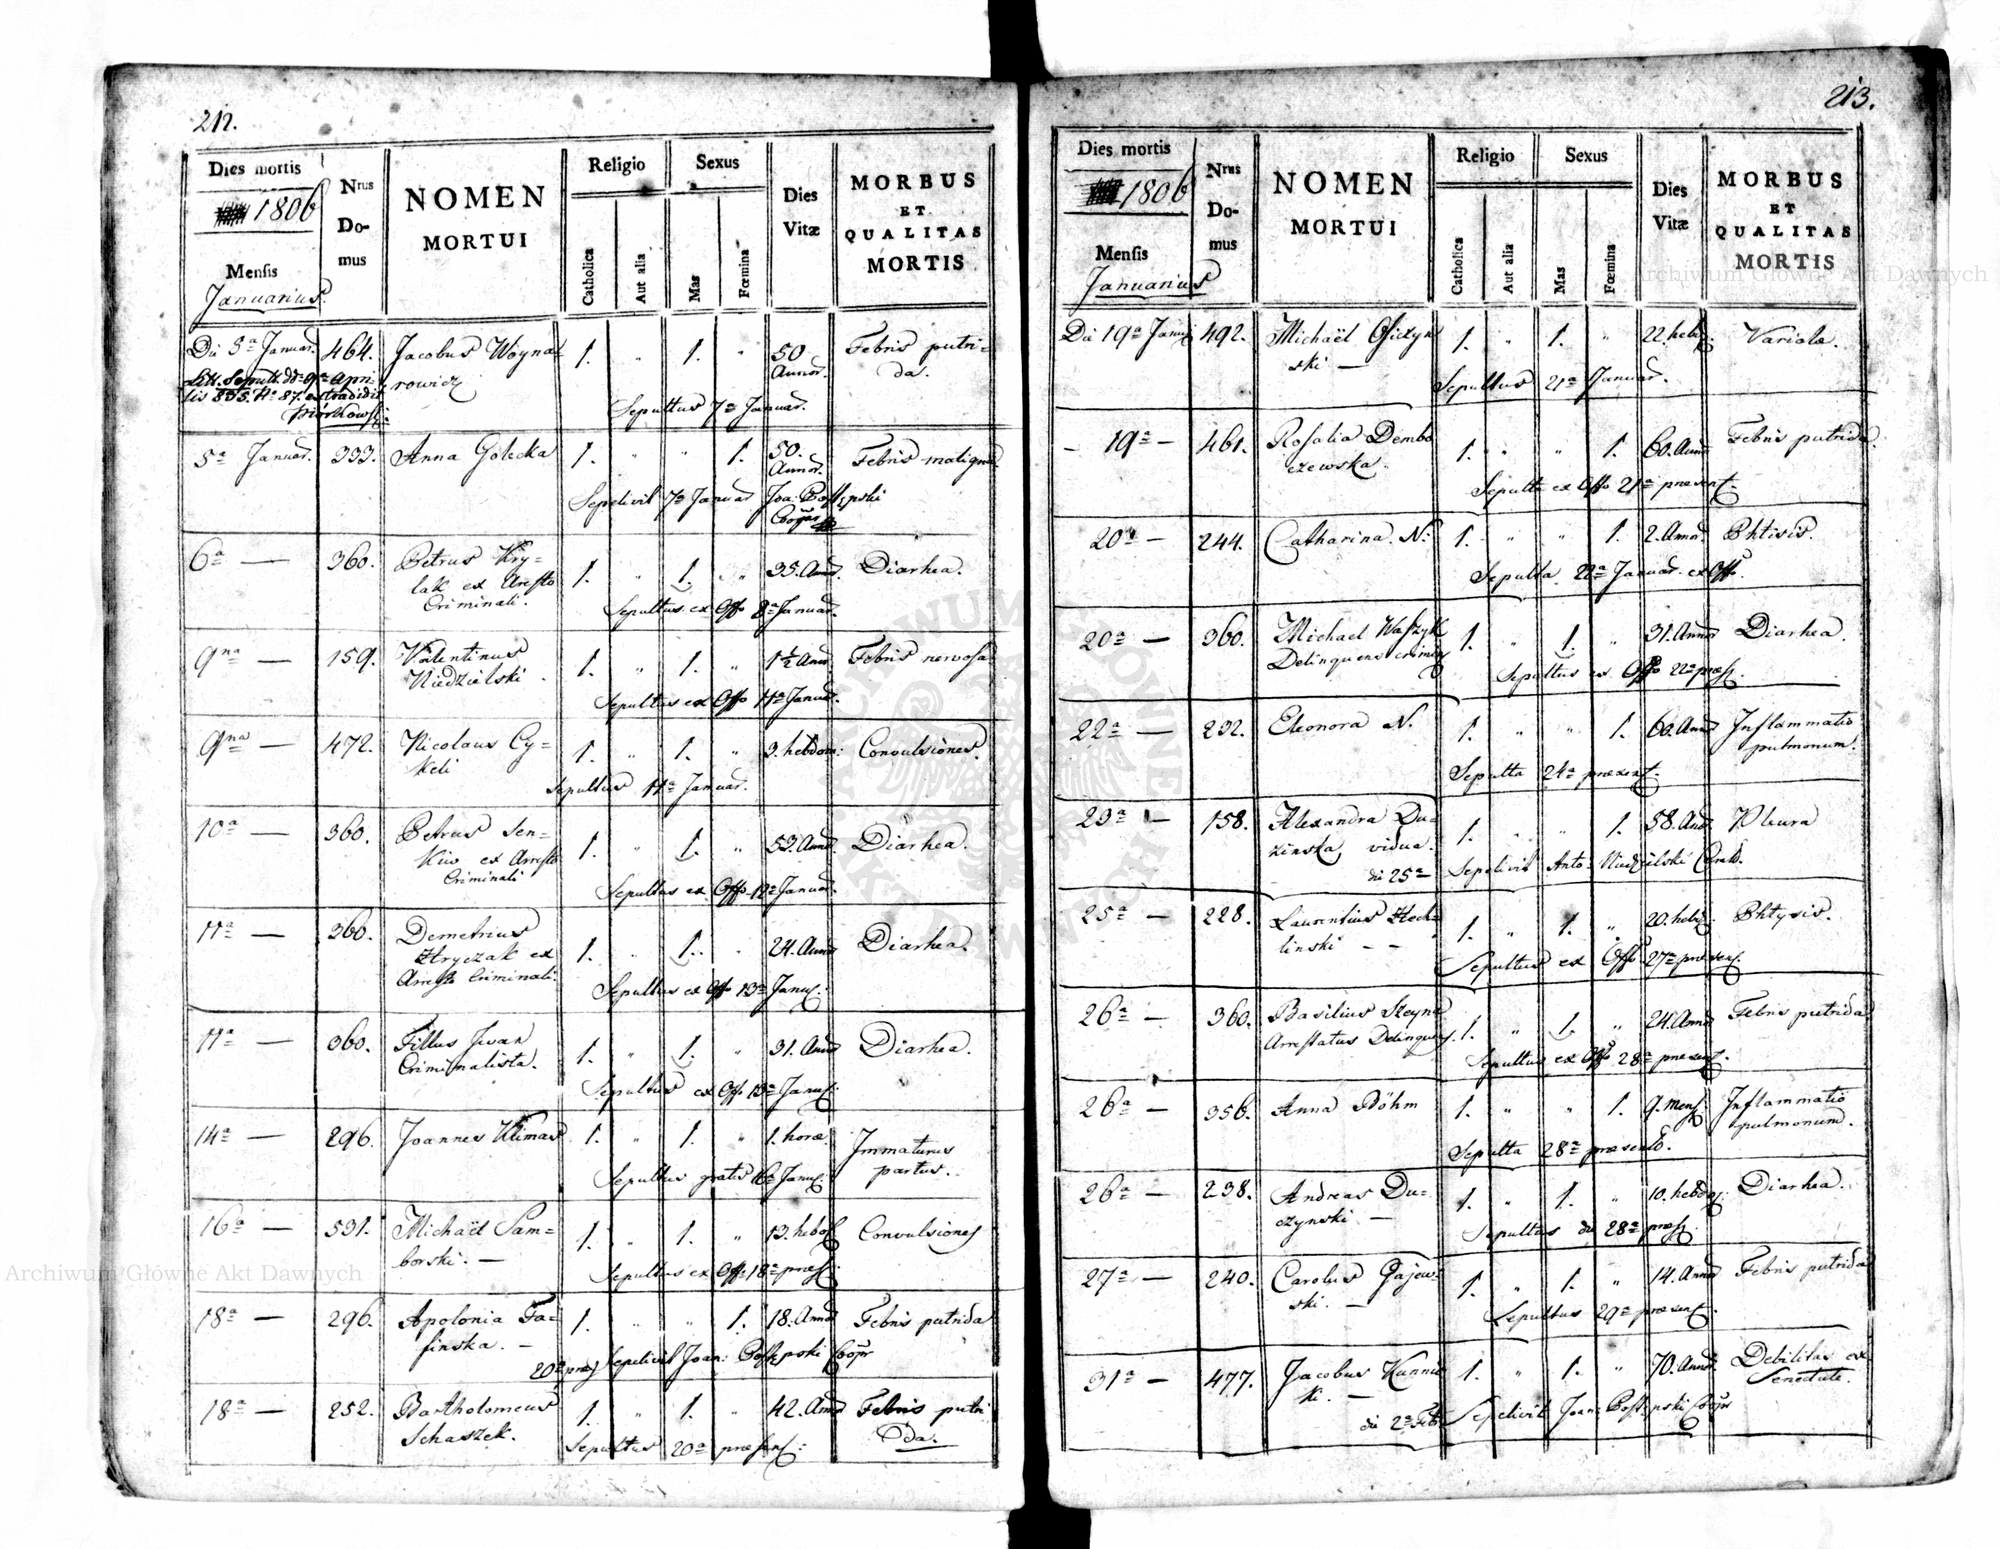 212.
Dies mortis
1806
Mensis
Januarius.
Nrus
Do-
mus
NOMEN
MORTUI
Religio
Catholica
Aut alia
Sexus
Mas
Fœmina
Dies
Vitæ
MORBUS
ET
QUALITAS
MORTIS
Die 5a Januar. 464. Jacobus Woyna- 1. " 1. " 50 Annor. Febris putri-
rowicz da.
Sepultus 7a Januar.
5a Januar. 333. Anna Golecka 1. " " 1. 50. Annor. Febris maligna
Sepelivit 7a Januar Joa: Postępski
Coopr
6a — 360. Petrus Kry- 1. " 1. " 35. Annor. Diarhea.
lak ex Aresto
Criminali.
Sepultus ex Offo 8a Januar.
9na — 159. Valentinus 1. " 1. " 1½ Annor. Febris nervosa
Niedzielski.
Sepultus ex Offo 11a Januar.
9na — 472. Nicolaus Cy- 1. " 1. " 3. hebdom: Convulsiones.
keli
Sepultus 11a Januar.
10a — 360. Petrus Sen- 1. " 1. " 53. Annor. Diarhea.
kiw ex Arresto
Criminali
Sepultus ex Offo 12a Januar.
11a — 360. Demetrius 1. " 1. " 24. Annor Diarhea.
Hryczak ex
Arresto Criminali.
Sepultus ex Offo 13a Janu.
11a — 360. Fillus Iwan 1. " 1. " 31. Annor Diarhea.
Criminalista.
Sepultus ex Offo 13a Janu.
14a — 296. Joannes Klimas 1. " 1. " 1. horæ Immaturus
partus.
Sepultus gratis 16a Janu.
16a — 531. Michaël Sam- 1. " 1. " 13. hebd Convulsiones
borski. —
Sepultus ex Offo 18a præs.
18a — 296. Apolonia Fa- 1. " " 1. 18. Annor Febris putrida
sinska. —
20a præs Sepelivit Joan: Postępski Coopr
18a — 252. Bartholomeus 1. " 1. " 42. Annor Febris putri
Schaszek. da.
Sepultus 20a præsen:
213.
Dies mortis
1806
Mensis
Januarius
Nrus
Do-
mus
NOMEN
MORTUI
Religio
Catholica
Aut alia
Sexus
Mas
Fœmina
Dies
Vitæ
MORBUS
ET
QUALITAS
MORTIS
Die 19a Janu 492. Michaël 1. " 1. " 22. hebd. Variolæ.
ski —
Sepultus 21a Januar.
— 19a — 461. Rosalia Dembo 1. " " 1. 60. Annor Febris putrida
czewska.
Sepulta ex Offo 21a præsent
20a — 244. Catharina. N: 1. " " 1. 2. Annor. Phtisis.
Sepulta 22a Januar. ex Offo.
20a — 360. Michael Waszyk 1. " 1. " 31. Annor Diarhea.
Delinquens crimin
Sepultus ex Offo 22a præs.
22a — 232. Eleonora N. 1. " " 1. 60. Annor Inflammatio
pulmonum.
Sepulta 24a præsent.
23a — 158. Alexandra Du- 1. " " 1. 58. Annor. Pleura
zinska vidua.
die 25a Sepelivit Anto: Niedzielski
25a — 228. Laurentius Stech- 1. " 1. " 20. hebd. Phtysis.
linski — —
Sepultus ex Offo 27a præsen.
26a — 360. Basilius Steyna 1. " 1. " 24. Annor Febris putrida
Arrestatus Delinquens.
Sepultus ex Offo 28a præsent.
26a — 356. Anna Böhm 1. " " 1. 9. Mens. Inflammatio
pulmonum.
Sepulta 28a præsent.
26a — 238. Andreas Du- 1. " 1. " 10. hebdo. Diarhea.
czynski. —
Sepultus die 28a præs.
27a — 240. Carolus Gajew- 1. " 1. " 14. Annor Febris putrida
ski. —
Sepultus 29a præsent.
31a — 477. Jacobus Kunnic 1. " 1. " 70. Annor. Debilitas ex
ki. — Senectute.
die 2a Feb. Sepelivit Joan: Postępski Coopr
Archiwum Główne Akt Dawnych
Archiwum Główne Akt Dawnych
ARCHIWUM GŁÓWNE AKT DAWNYCH